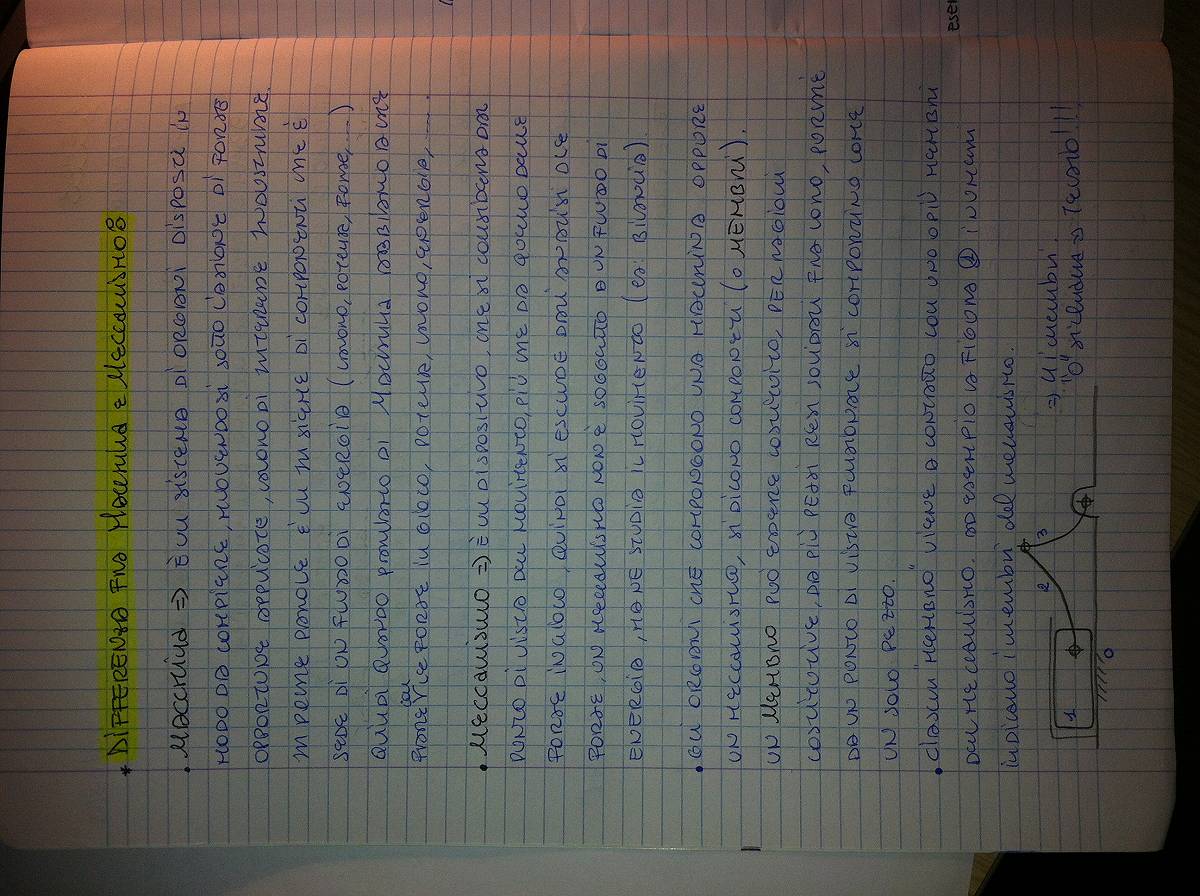 * DIFFERENZA FRA MACCHINA E MECCANISMO
• MACCHINA => È UN SISTEMA DI ORGANI DISPOSTI IN
MODO DA COMPIERE, MUOVENDOSI SOTTO L'AZIONE DI FORZE
OPPORTUNE APPLICATE, LAVORO DI INTERESSE INDUSTRIALE.
IN POCHE PAROLE È UN INSIEME DI COMPONENTI CHE È
SEDE DI UN FLUSSO DI ENERGIA (LAVORO, POTENZA, FORZE, ....)
QUINDI QUANDO PARLIAMO DI MACCHINA DOBBIAMO ANCHE
LE FORZE IN GIOCO, POTENZA, LAVORO, ENERGIA, ....
• MECCANISMO => È UN DISPOSITIVO, CHE SI CONSIDERA DAL
PUNTO DI VISTA DEL MOVIMENTO, PIÙ CHE DA QUELLO DELLE
FORZE IN GIOCO, QUINDI SI ESCLUDE DALL'ANALISI DLE
FORZE, UN MECCANISMO NON È SOGGETTO A UN FLUSSO DI
ENERGIA, MA NE STUDIA IL MOVIMENTO (ES: BILANCIA).
• GLI ORGANI CHE COMPONGONO UNA MACCHINA OPPURE
UN MECCANISMO, SI DICONO COMPONENTI (O MEMBRI).
UN MEMBRO PUÒ ESSERE COSTITUITO, PER RAGIONI
COSTRUTTIVE, DA PIÙ PEZZI RESI SOLIDALI FRA LORO, PURCHÈ
DA UN PUNTO DI VISTA FUNZIONALE SI COMPORTINO COME
UN SOLO PEZZO.
• CIASCUN "MEMBRO" VIENE A CONTATTO CON UNO O PIÙ MEMBRI
DEL MECCANISMO. AD ESEMPIO LA FIGURA I NUMERI
INDICANO I MEMBRI DEL MECCANISMO.
=> 4 MEMBRI.
"0" SI CHIAMA => TELAIO!!!
1
2
3
0